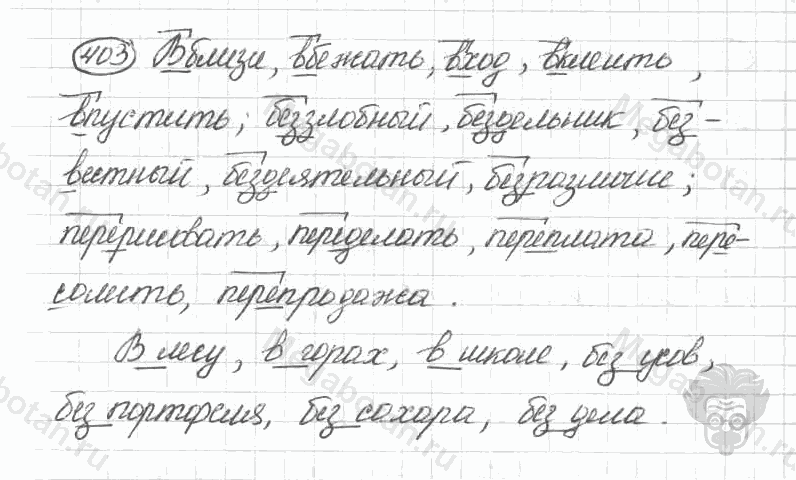 403 Вблизи, вбежать, вход, вклеить,
впустить; беззлобный, бездельник, без-
вестный, бездеятельный, безразличие;
перерисовать, переделать, переплата, пере-
солить, перепродажа.
В лесу, в горах, в школе, без усов,
без портфеля, без сахара, без дела.
Megabotan.ru